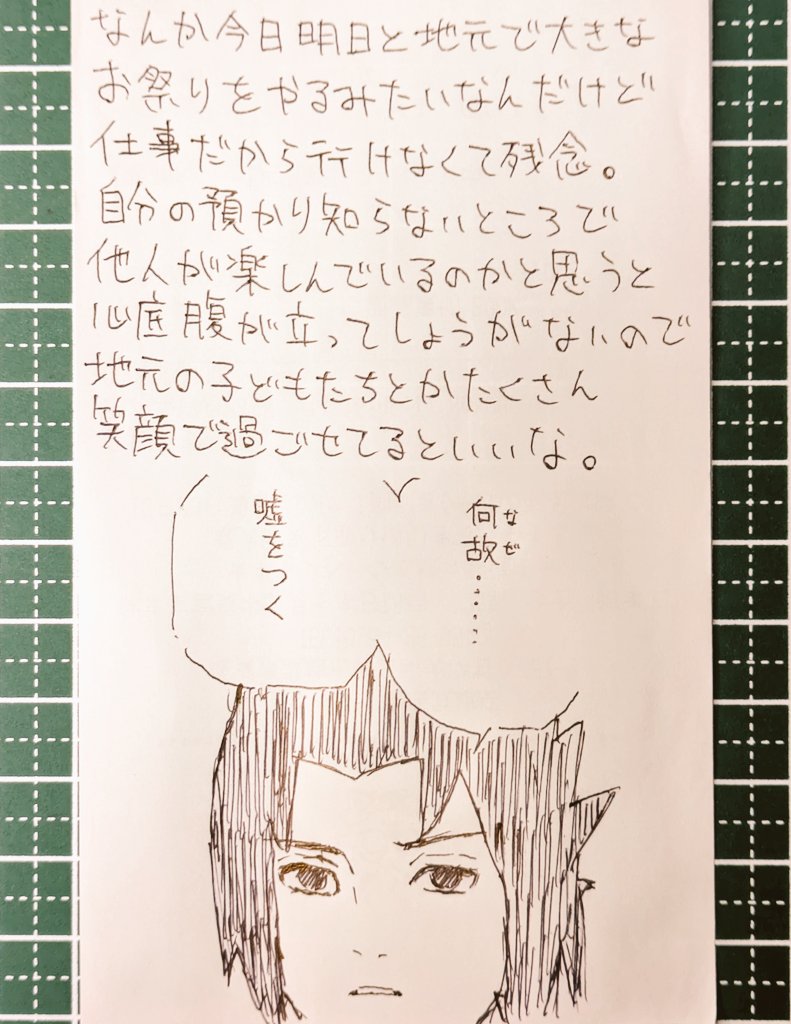 なんか今日明日と地元で大きな
お祭りをやるみたいなんだけど
仕事だから行けなくて残念。
自分の預かり知らないところで
他人が楽しんでいるのかと思うと
心底腹が立ってしょうがないので
地元の子どもたちとかたくさん
笑顔で過ごせてるといいな。
何故……
なぜ
嘘をつく